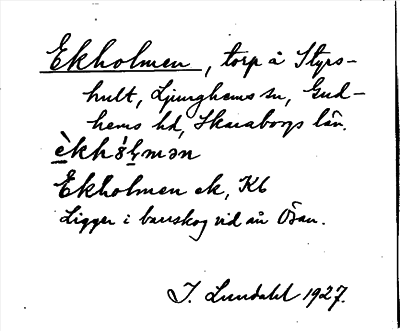 Ekholmen, torp å Styrs-
hult, Ljunghems sn, Gud-
hems hd, Skaraborgs län.
Ekholmen ek, Kb
Ligger i barrskog vid ån Ösan.
I. Lundahl 1927.